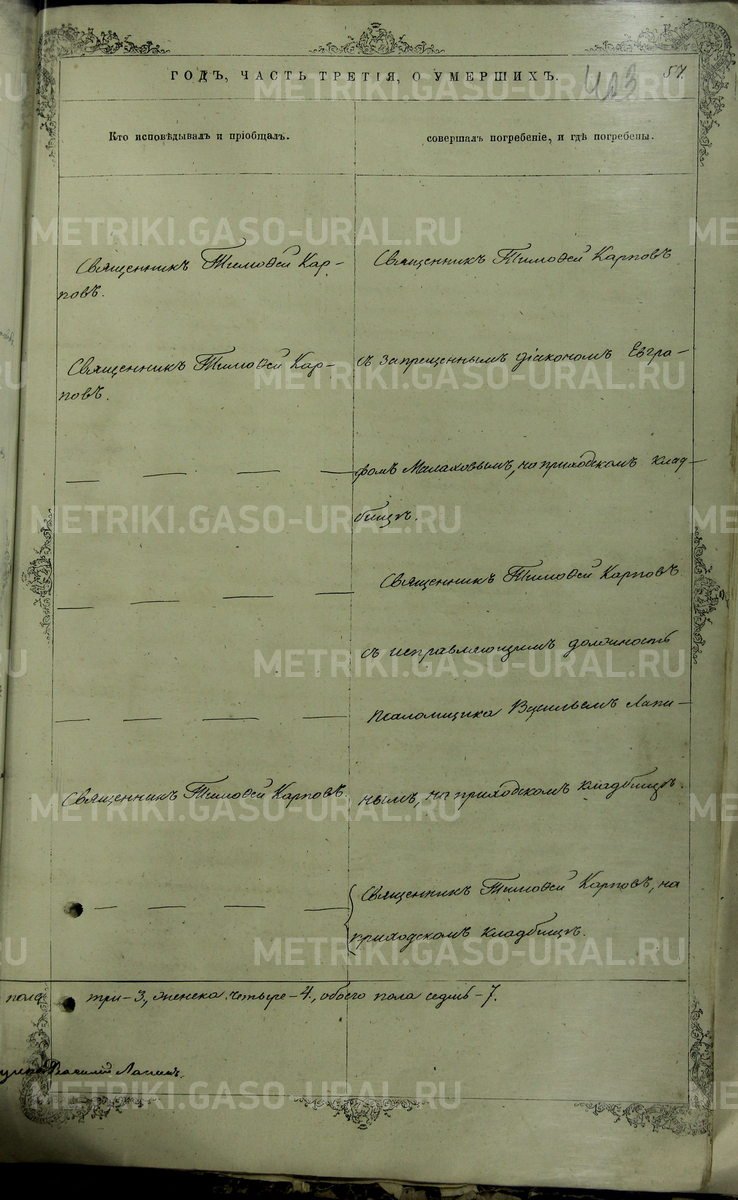 ГОДЪ, ЧАСТЬ ТРЕТІЯ, О УМЕРШИХЪ.
403
57.
Кто исповѣдывалъ и пріобщалъ.
совершалъ погребеніе, и гдѣ погребены.
Священникъ Тимоѳей Кар-
повъ.
Священникъ Тимоѳей Кар-
повъ.
Священникъ Тимоѳей Карповъ.
Священникъ Тимоѳей Карповъ
съ запрещеннымъ діакономъ Евгра-
фомъ Малаховымъ, на приходскомъ клад-
бищѣ.
Священникъ Тимоѳей Карповъ
съ исправляющимъ должность
псаломщика Васильемъ Лапи-
нымъ, на приходскомъ кладбищѣ.
Священникъ Тимоѳей Карповъ, на
приходскомъ кладбищѣ.
пола три-3, женска четыре-4, обоего пола седмь-7.
Василий Лапинъ.
METRIKI.GASO-URAL.RU